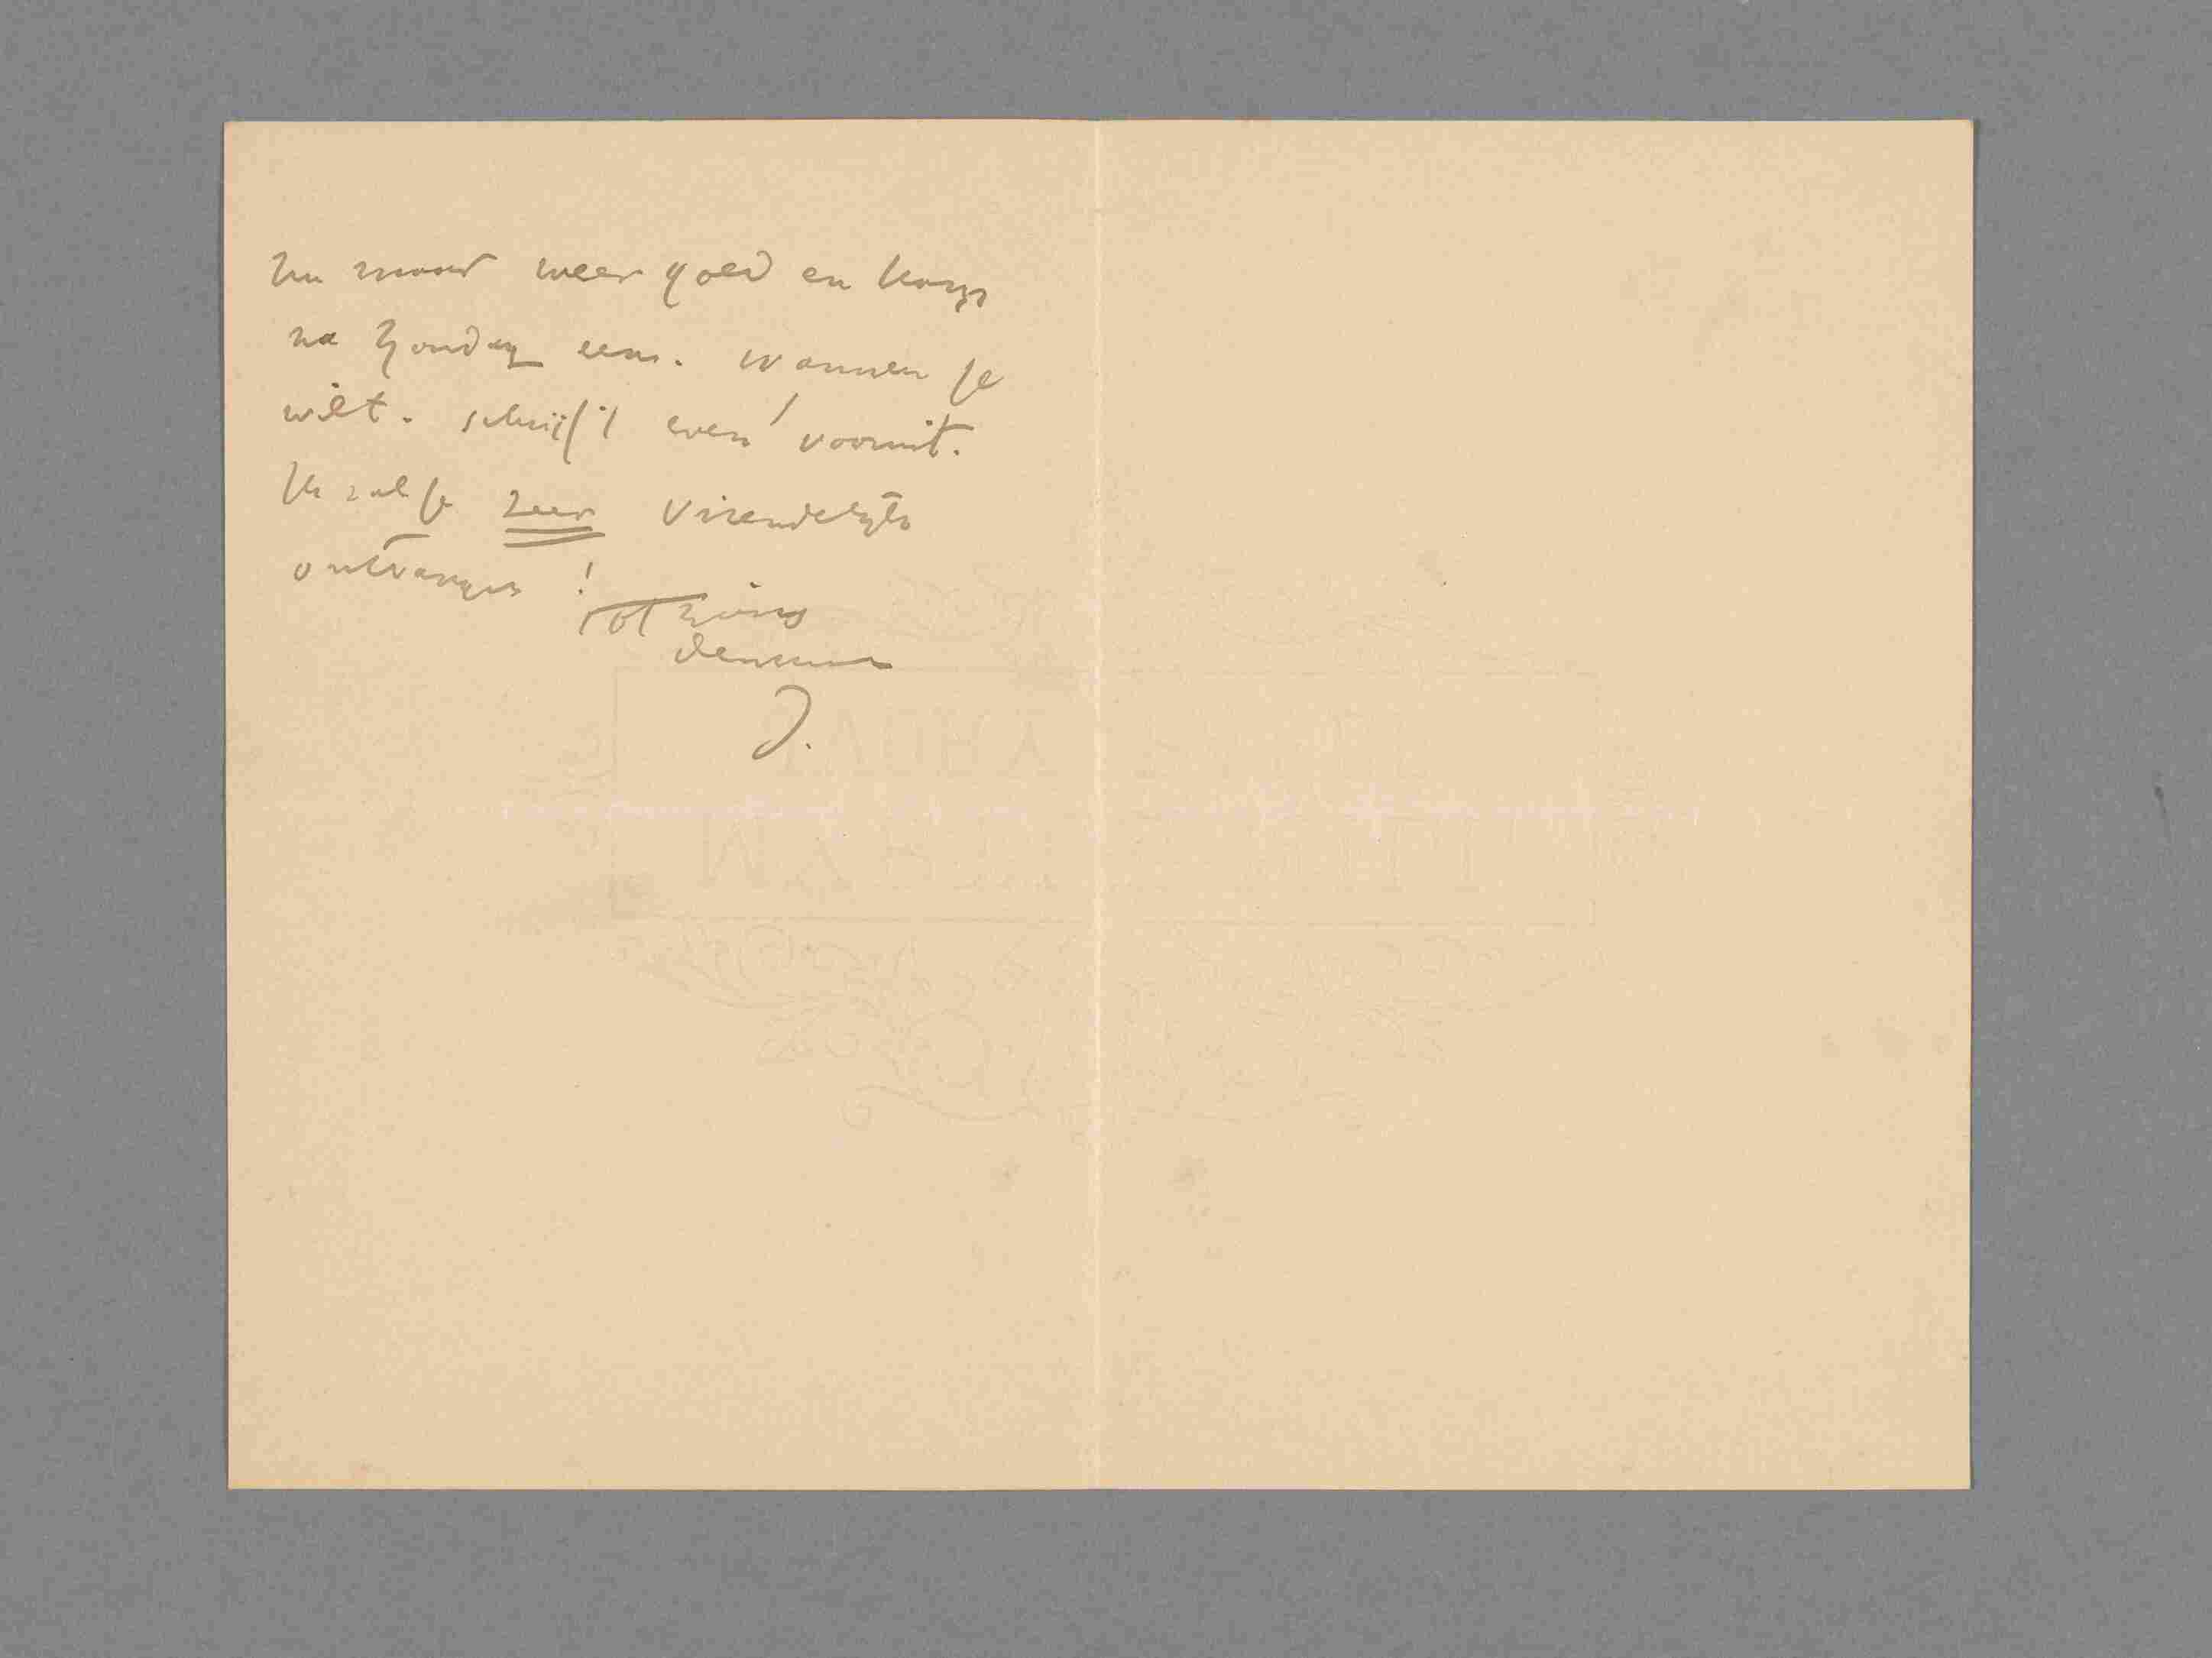 nu maar weer goed en kom
na Zondag eens. wanneer je
wilt. schrijf 't even vooruit.
Ik zal je zeer vriendelijk
ontvangen!
tot ziens
J.